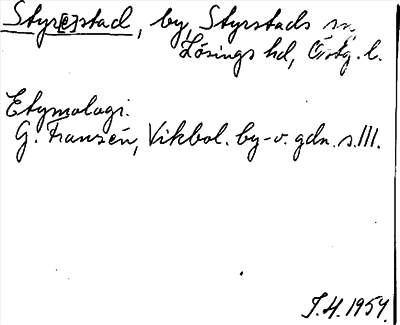 Styr[e]stad, by, Styrstads sn,
Lösings hd, Östg. l.
Etymologi.
G. Franzén, Vikbol. by- o. gdn. s. 111.
J.H. 1954.